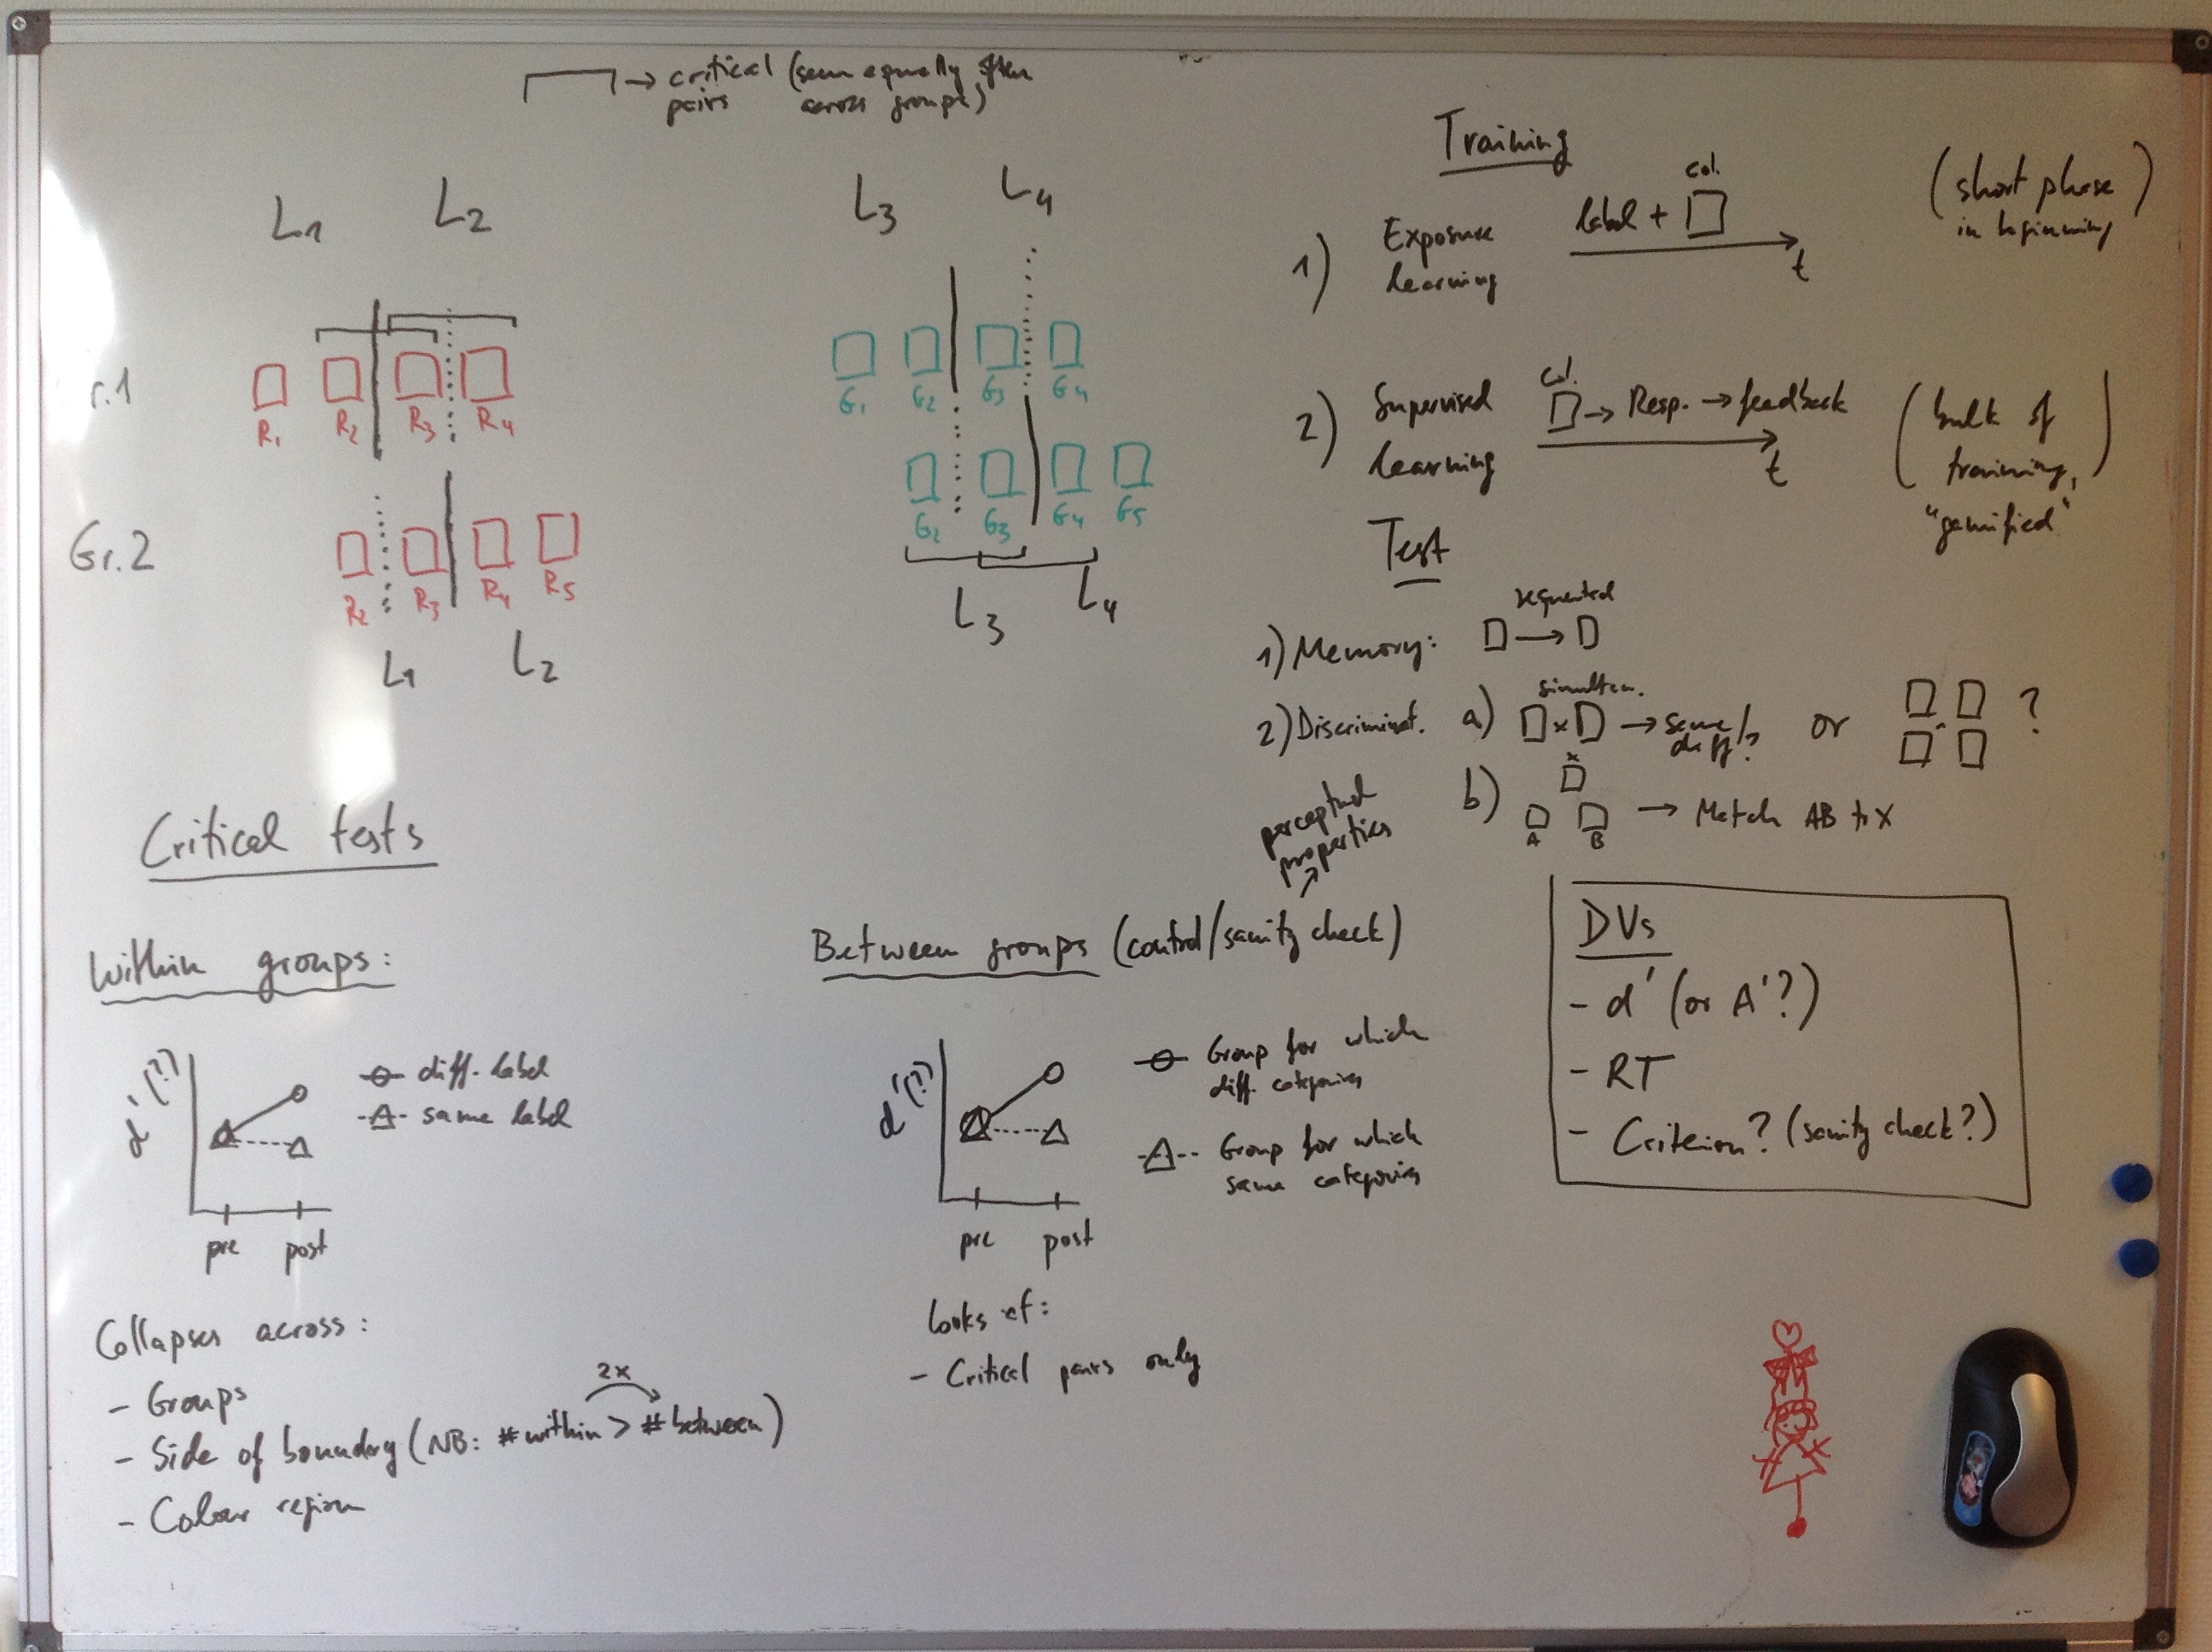 → critical (seen equally often
pairs across groups)
L1 L2
r.1
R1 R2 R3 R4
Gr.2
R2 R3 R4 R5
L1 L2
L3 L4
G1 G2 G3 G4
G2 G3 G4 G5
L3 L4
Training
1) Exposure learning
label + col.
t
(short phase
in beginning)
2) Supervised learning
col.
→ Resp. → feedback
t
(bulk of
training,
"gamified")
Test
1) Memory: →
sequential
2) Discriminat. a) x → same/
diff? or ?
simultan.
b) x
A B → Match AB to X
perceptual
properties
Critical tests
Within groups:
d'(?)
diff. label
same label
pre post
Collapses across:
- Groups
2x
- Side of boundary (NB: #within > #between)
- Colour region
Between groups (control/sanity check)
d'(?)
Group for which
diff. categories
Group for which
same categories
pre post
Looks at:
- Critical pairs only
DVs
- d' (or A'?)
- RT
- Criterion? (sanity check?)